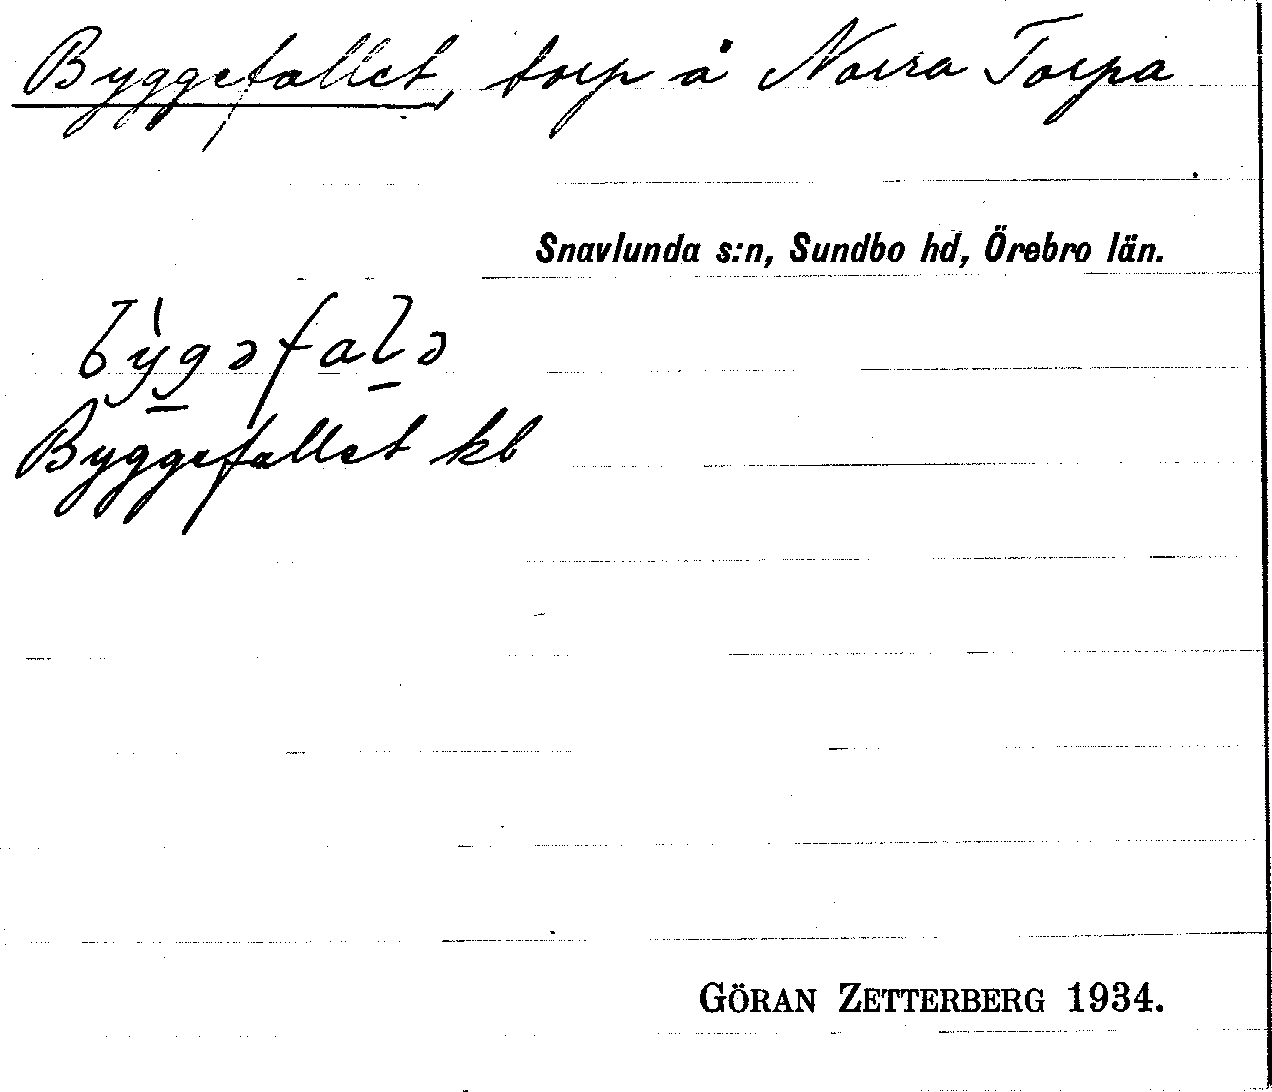 Byggefallet, torp å Norra Torpa
Snavlunda s:n, Sundbo hd, Örebro län.
by̆̀gəfalə
Byggefallet kb
GÖRAN ZETTERBERG 1934.